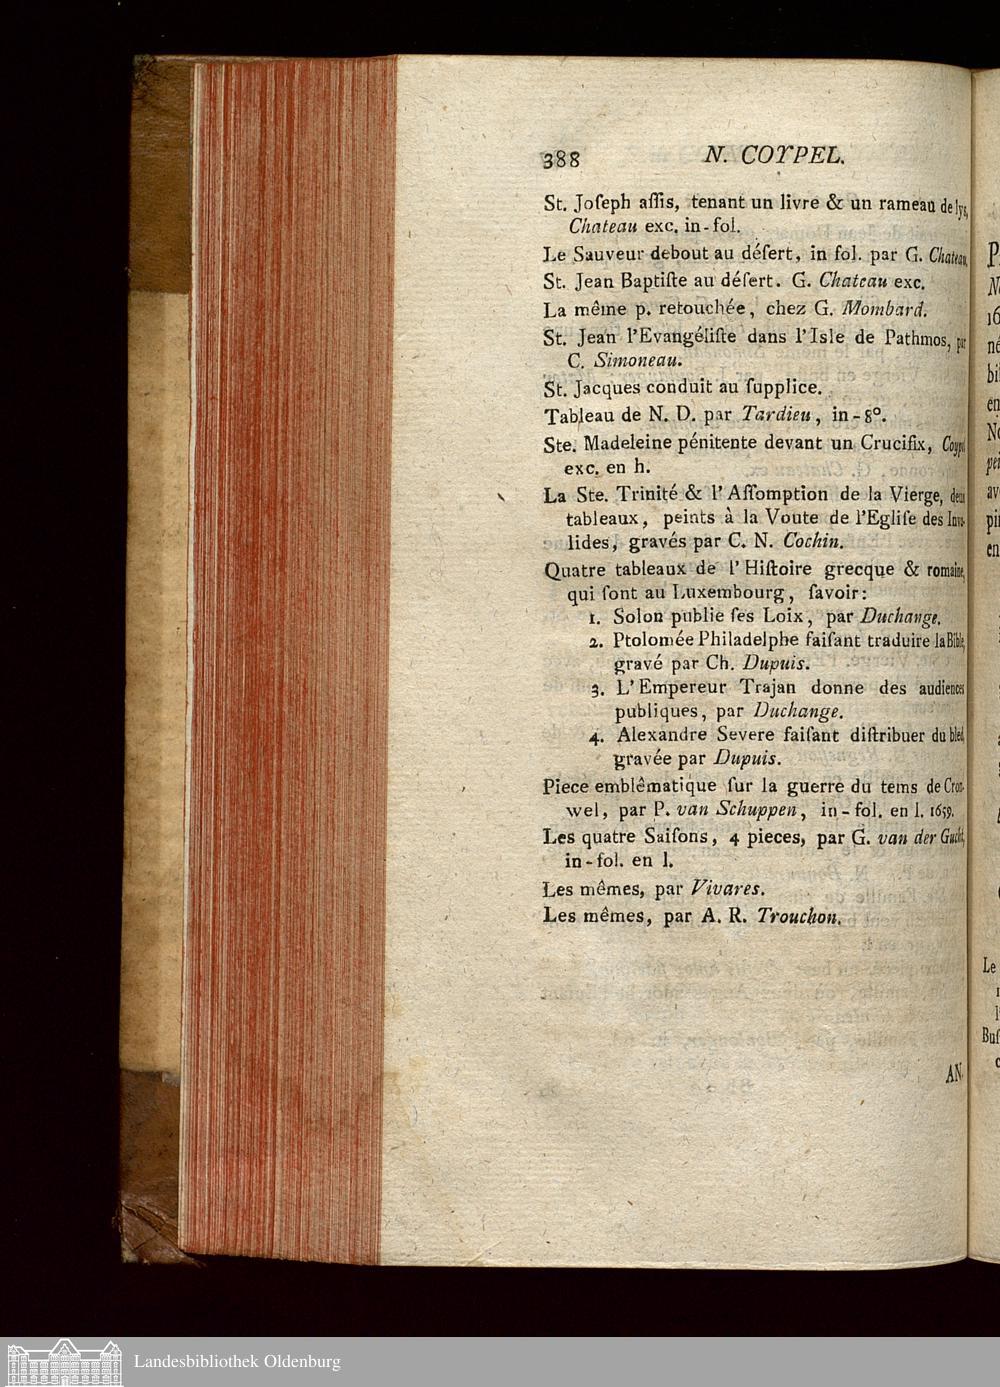 388 N. COYPEL.
St. Joſeph aſſis, tenant un livre & un rameau de lys,
Chateau exc. in-fol.
Le Sauveur debout au déſert, in fol. par G. Chateau,
St. Jean Baptiſte au déſert. G. Chateau exc.
La même p. retouchée, chez G. Mombard.
St. Jean l'Evangéliſte dans l'Isle de Pathmos, par
C. Simoneau.
St. Jacques conduit au ſupplice.
Tableau de N. D. par Tardieu, in-8°.
Ste. Madeleine pénitente devant un Crucifix, Coypel
exc. en h.
La Ste. Trinité & l'Aſſomption de la Vierge, deux
tableaux, peints à la Voute de l'Egliſe des Inva-
lides, gravés par C. N. Cochin.
Quatre tableaux de l'Hiſtoire grecque & romaine,
qui ſont au Luxembourg, ſavoir:
1. Solon publie ſes Loix, par Duchange.
2. Ptolomée Philadelphe faiſant traduire la Bible,
gravé par Ch. Dupuis.
3. L'Empereur Trajan donne des audiences
publiques, par Duchange.
4. Alexandre Severe faiſant diſtribuer du bled,
gravée par Dupuis.
Piece emblêmatique ſur la guerre du tems de Crom-
wel, par P. van Schuppen, in-fol. en l. 1659.
Les quatre Saiſons, 4 pieces, par G. van der Gucht,
in-fol. en l.
Les mêmes, par Vivares.
Les mêmes, par A. R. Trouchon.
AN-
Le
Landesbibliothek Oldenburg